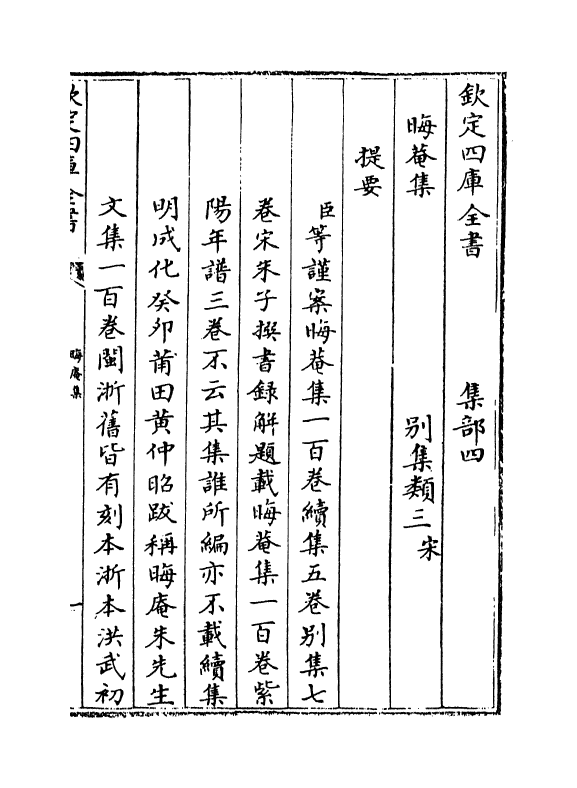 欽定四庫全書　集部四
晦菴集　别集類三宋
提要
臣等謹案晦菴集一百卷續集五卷别集七
卷宋朱子撰書錄解題載晦菴集一百卷紫
陽年譜三卷不云其集誰所編亦不載續集
明成化癸卯莆田黄仲昭跋稱晦庵朱先生
文集一百卷閩浙舊皆有刻本浙本洪武初
欽定四庫全書　晦庵集　一